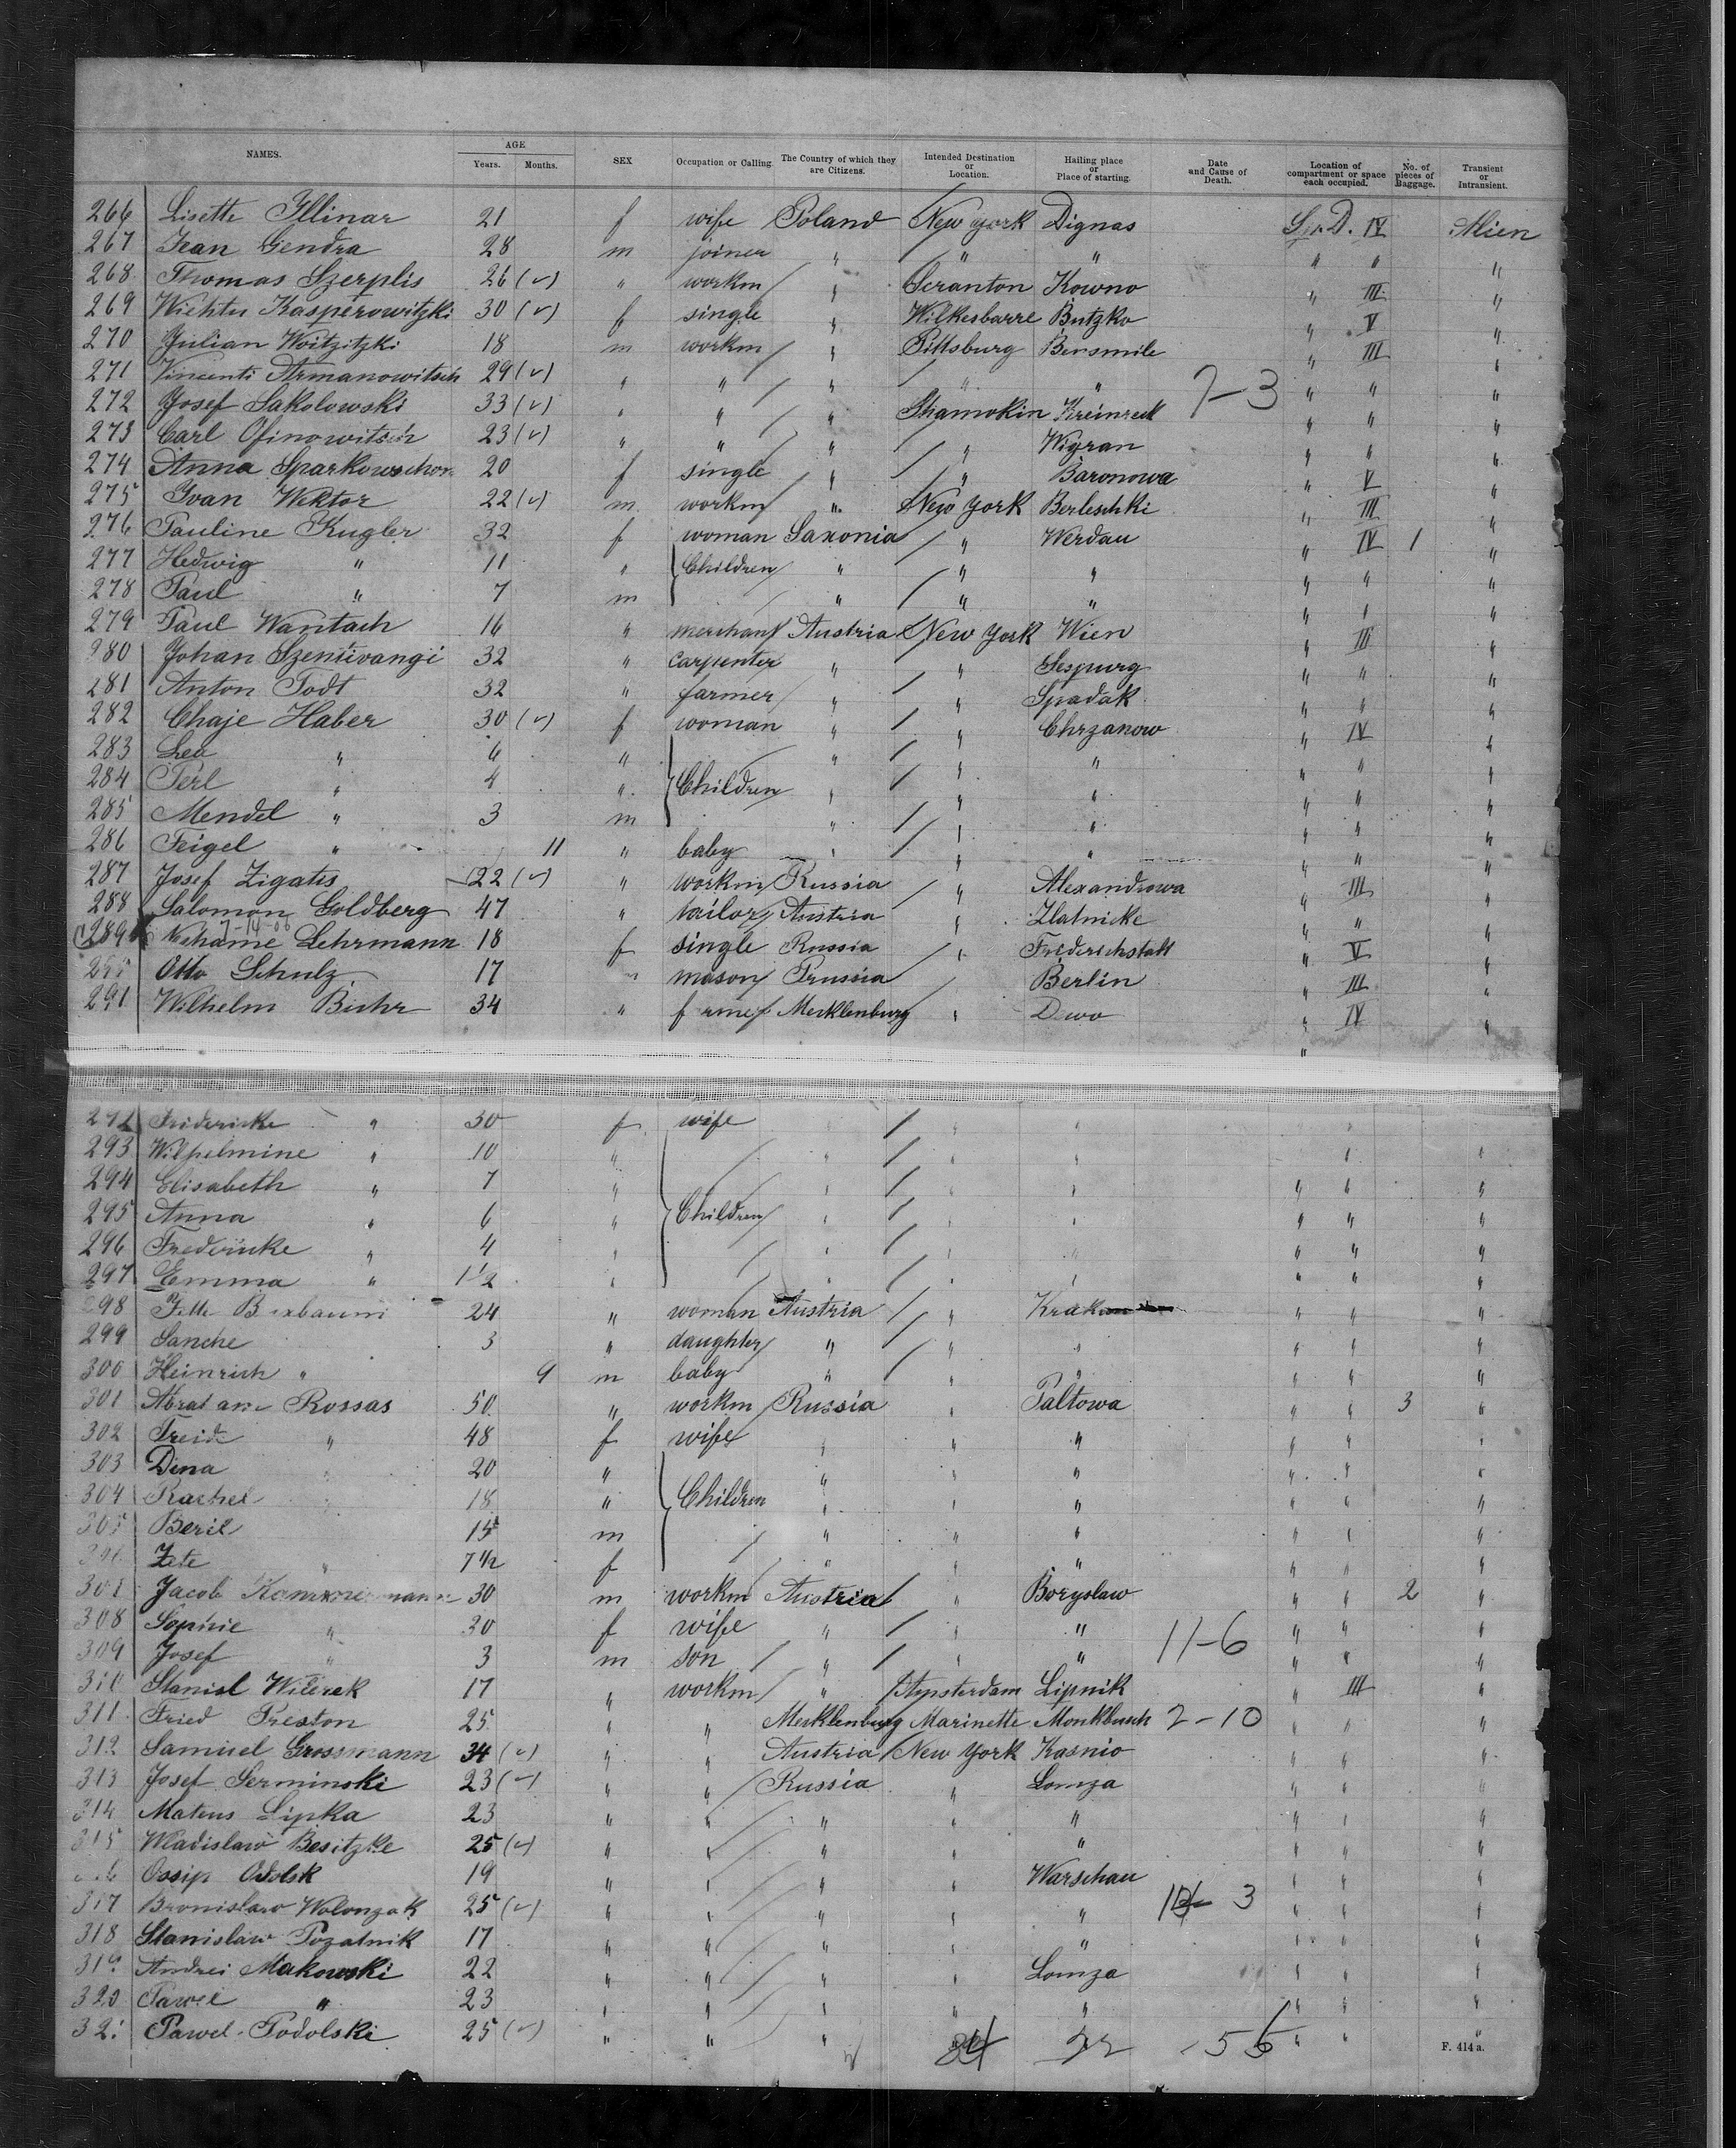 NAMES. AGE Years. Months. SEX Occupation or Calling. The Country of which they are Citizens. Intended Destination or Location. Hailing place or Place of starting. Date and Cause of Death. Location of compartment or space each occupied. No. of pieces of Baggage. Transient or Intransient.
266 Lisette Illinar 21 f wife Poland New York Dignas IV Alien
267 Jean Gendra 28 m joiner " " " " " "
268 Thomas Szerplis 26 (v) " workm " Scranton Kowno " III "
269 Kasperowitzki 30 (v) f single " Wilkesbarre Butzko " V "
270 Julian Woitzitzki 18 m workm " Pittsburg Bersmile " III "
271 Vincenti Armanowitsch 29 (v) " " " " " 7-3 " " "
272 Josef Sakolowski 33 (v) " " " Shamokin " " "
273 Carl Ofinowitsch 23 (v) " " " " Wigran " " "
274 Anna 20 f single " " Baronowa " V "
275 Ivan Wektor 22 (v) m workm " New York Berleschki " III "
276 Pauline Kugler 32 f woman Saxonia " Werdau " IV 1 "
277 Hedwig " 11 " Children " " " " " "
278 Paul " 7 m " " " " " "
279 Paul Wantach 16 " merchant Austria New York Wien " III "
280 Johan Szentivangi 32 " carpenter " " Sespurg " " "
281 Anton Todt 32 " farmer " " Spadak " " "
282 Chaje Haber 30 (v) f woman " " Chrzanow " IV "
283 Lea " 6 " " " " " " "
284 Perl " 4 " Children " " " " " "
285 Mendel " 3 m " " " " " "
286 Feigel " 11 " baby " " " " " "
287 Josef Zigatis 22 (v) " workm Russia " Alexandrowa " III "
288 Salomon Goldberg 47 " tailor Austria " Zlatnicke " " "
7-14-06
289 Nehame Lehrmann 18 f single Russia " Friedrichstadt " V "
Otto Schulz 17 m mason Prussia Berlin " III "
291 Wilhelm Buhr 34 " f rmer Mecklenburg " " IV "
"
292 Fridericke " 30 f wife " " "
293 Wilhelmine " 10 " " " " " "
294 Elisabeth " 7 " " " " " " "
295 Anna " 6 " Children " " " " " "
296 Fredericke " 4 " " " " " " "
297 Emma " 1 1/2 " " " " " " "
298 24 " woman Austria " Krakau " " "
299 Sanche 3 " daughter " " " " " "
300 Heinrich " 9 m baby " " " " " "
301 Abraham Rossas 50 " workm Russia " Paltowa " " 3 "
302 Freid " 48 f wife " " " " " "
303 Dina " 20 " " " " " " "
304 Rachel " 18 " Children " " " " " "
305 Beril 15 m " " " " " "
Zete " 7 1/2 f " " " " " "
Jacob 30 m workm Austria " Boryslaw " " 2 "
308 Sophie " 30 f wife " " " 11-6 " " "
309 Josef " 3 m son " " " " " "
310 Stanisl 17 " workm " Amsterdam Lipnik " III "
311 Fried Preston 25 " " Mecklenburg Marinette Monkbusch 2-10 " " "
312 Samuel Grossmann 34 (v) " " Austria New York Kasnio " " "
313 Josef Serminski 23 (v) " " Russia " Lomza " " "
314 Mateus Lipka 23 " " " " " " " "
315 Wladislaw Besitzke 25 (v) " " " " " " " "
Ossip 19 " " " " Warschau " " "
317 Bronislaw Wolonzak 25 (v) " " " " " 3 " " "
318 Stanislaw Pozatnik 17 " " " " " " " "
319 Andrei Makowski 22 " " " " Lomza " " "
320 Pawel " 23 " " " " " " " "
321 Pawel Podolski 25 (v) " " " 22 55 " " "
F. 414 a.